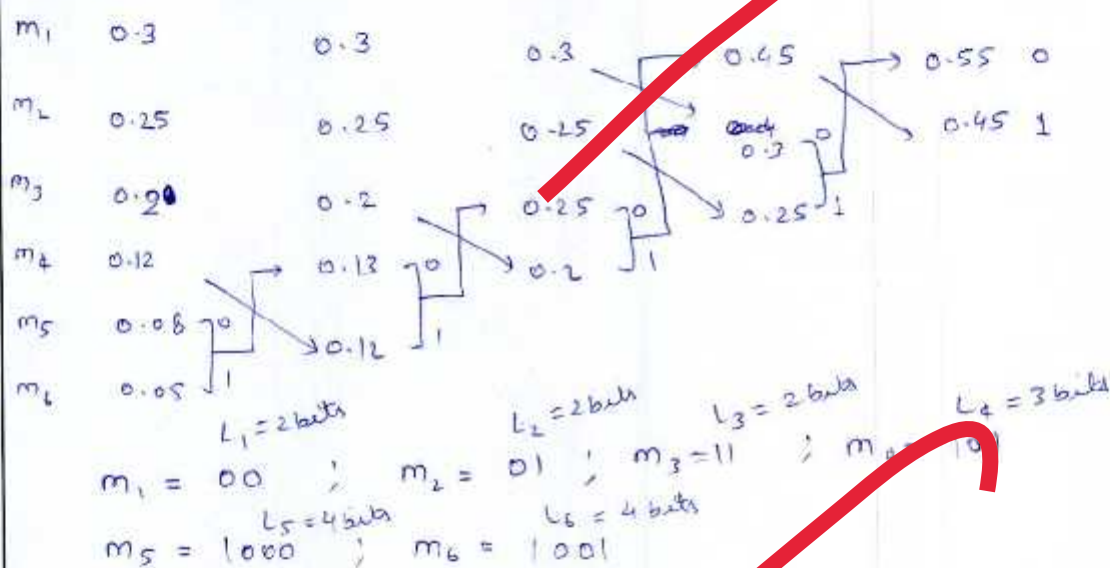 m₁ 0.3 0.3 0.3 0.45 0.55 0
m₂ 0.25 0.25 0.25 0.3 0 0.45 1
m₃ 0.2 0.2 0.25 0 0.25 1
m₄ 0.12 0.13 0 0.2 1
m₅ 0.08 0 0.12 1
m₆ 0.05 1
L₁ = 2 bits L₂ = 2 bits L₃ = 2 bits L₄ = 3 bits
m₁ = 00 ; m₂ = 01 ; m₃ = 11 ; m₄ = 101
L₅ = 4 bits L₆ = 4 bits
m₅ = 1000 ; m₆ = 1001